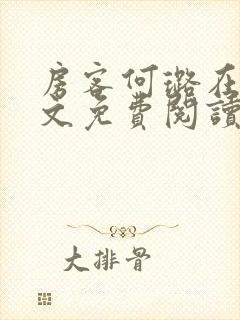 房客何璐在
文免费閱讀
大排骨